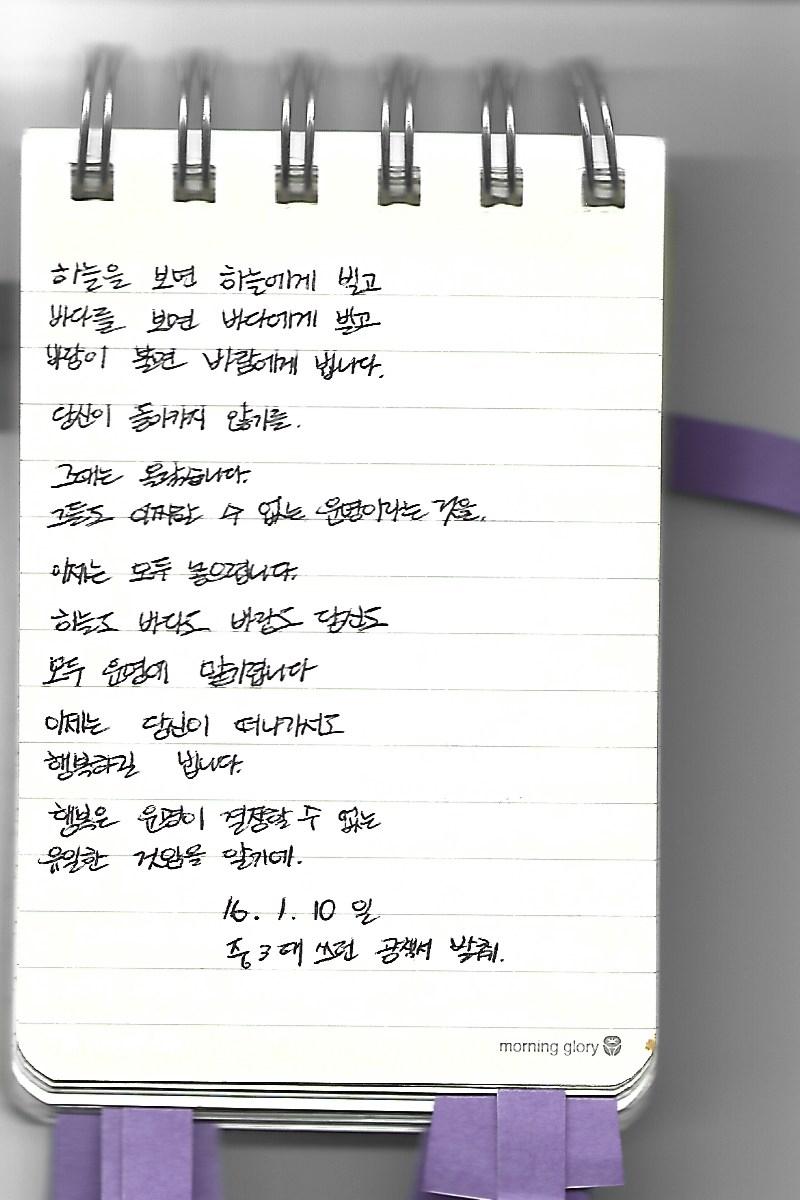 하늘을 보면 하늘에게 빌고
바다를 보면 바다에게 빌고
바람이 불면 바람에게 빕니다.
당신이 돌아가지 않기를.
그때는 몰랐습니다.
그들도 어찌할 수 없는 운명이라는 것을.
이제는 모두 놓으렵니다.
하늘도 바다도 바람도 당신도
모두 운명에 맡기렵니다
이제는 당신이 떠나가서도
행복하길 빕니다.
행복은 운명이 결정할 수 없는
유일한 것임을 알기에.
16. 1. 10 일
중3때 쓰던 공책서 발췌.
morning glory